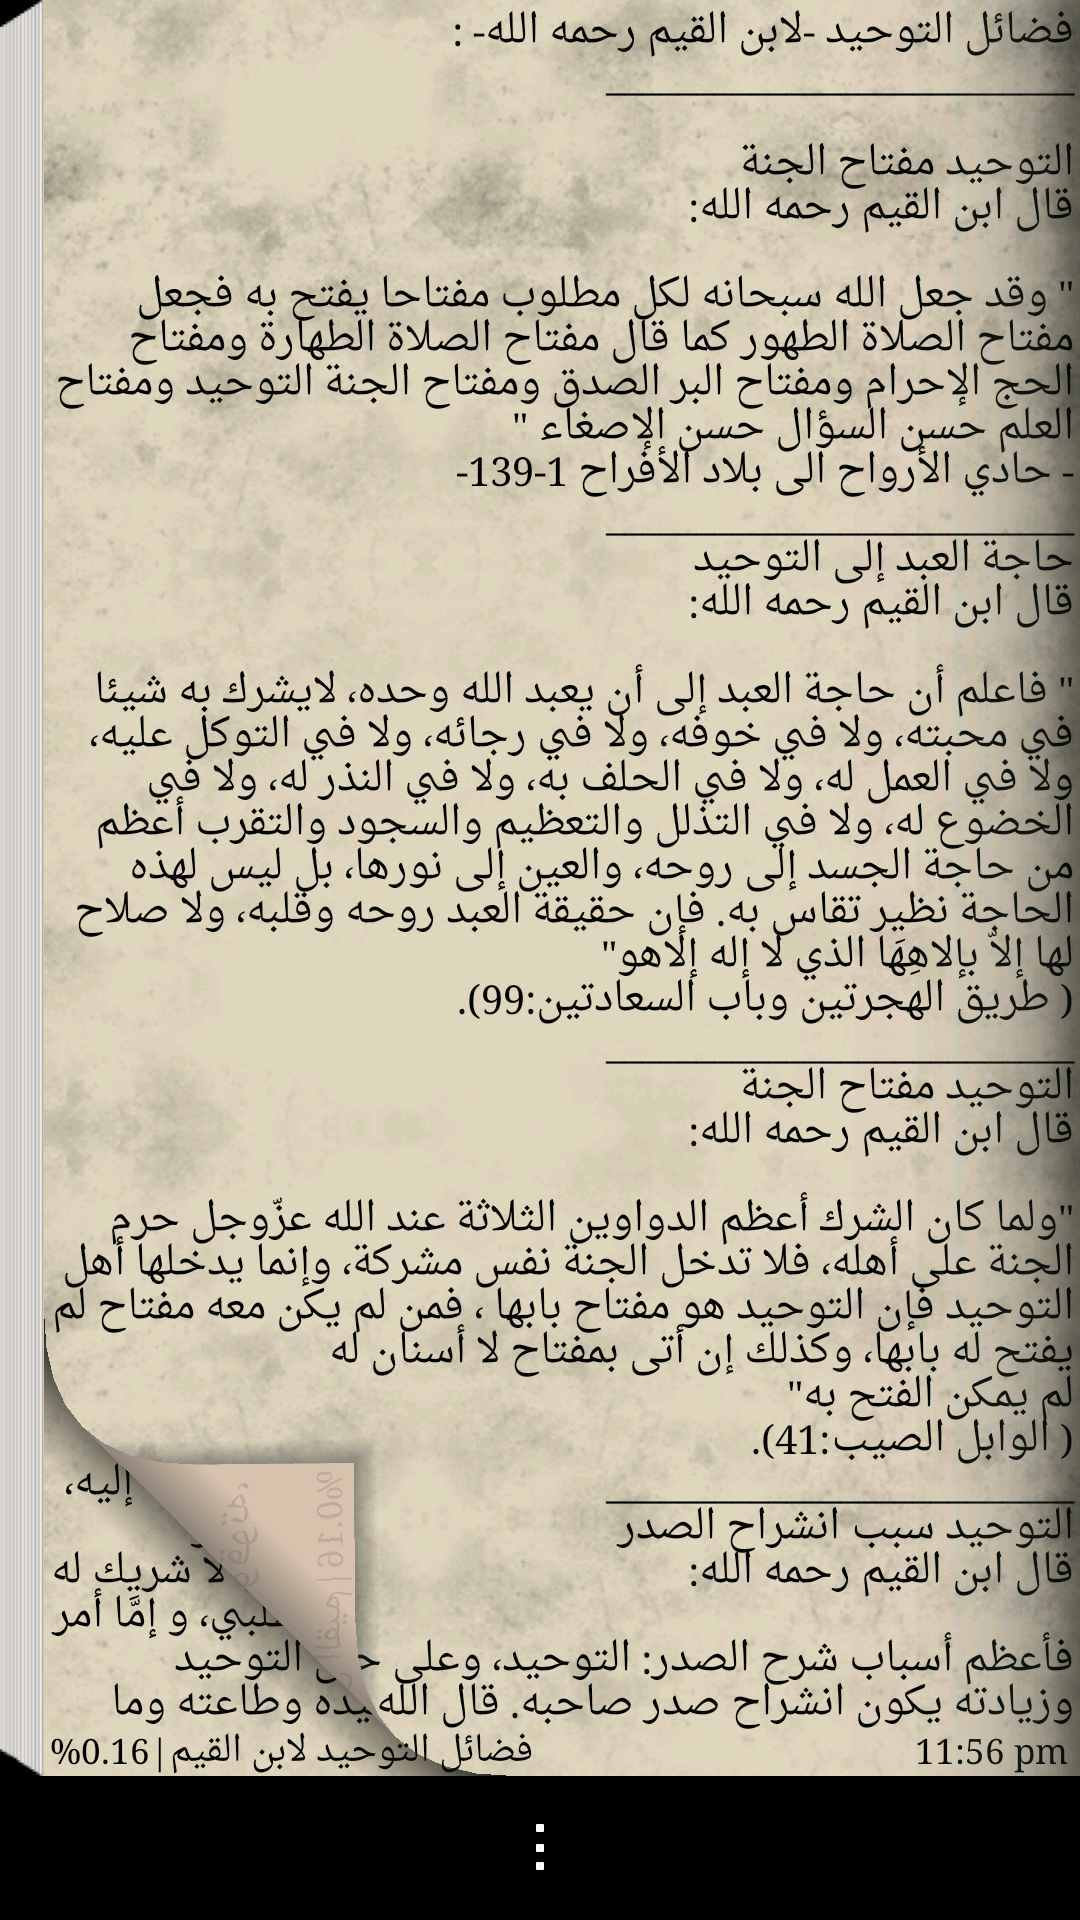 فضائل التوحيد -لابن القيم رحمه الله- :
التوحيد مفتاح الجنة
قال ابن القيم رحمه الله:
" وقد جعل الله سبحانه لكل مطلوب مفتاحا يفتح به فجعل
مفتاح الصلاة الطهور كما قال مفتاح الصلاة الطهارة ومفتاح
الحج الإحرام ومفتاح البر الصدق ومفتاح الجنة التوحيد ومفتاح
العلم حسن السؤال حسن الإصغاء "
- حادي الأرواح الى بلاد الأفراح 1-139-
حاجة العبد إلى التوحيد
قال ابن القيم رحمه الله:
" فاعلم أن حاجة العبد إلى أن يعبد الله وحده، لايشرك به شيئا
في محبته، ولا في خوفه، ولا في رجائه، ولا في التوكل عليه،
ولا في العمل له، ولا في الحلف به، ولا في النذر له، ولا في
الخضوع له، ولا في التذلل والتعظيم والسجود والتقرب أعظم
من حاجة الجسد إلى روحه، والعين إلى نورها، بل ليس لهذه
الحاجة نظير تقاس به. فإن حقيقة العبد روحه وقلبه، ولا صلاح
لها إلاّ بإلاهِهَا الذي لا إله إلاهو"
( طريق الهجرتين وباب السعادتين:99).
التوحيد مفتاح الجنة
قال ابن القيم رحمه الله:
"ولما كان الشرك أعظم الدواوين الثلاثة عند الله عزّوجل حرم
الجنة على أهله، فلا تدخل الجنة نفس مشركة، وإنما يدخلها أهل
التوحيد فإن التوحيد هو مفتاح بابها ، فمن لم يكن معه مفتاح لم
يفتح له بابها، وكذلك إن أتى بمفتاح لا أسنان له
لم يمكن الفتح به"
( الوابل الصيب:41).
إليه،
التوحيد سبب انشراح الصدر
قال ابن القيم رحمه الله: لا شريك له
و إمَّا أمر
فأعظم أسباب شرح الصدر: التوحيد، وعلى التوحيد
وزيادته يكون انشراح صدر صاحبه. قال الله وطاعته وما
11:56 pm فضائل التوحيد لابن القيم|0.16%